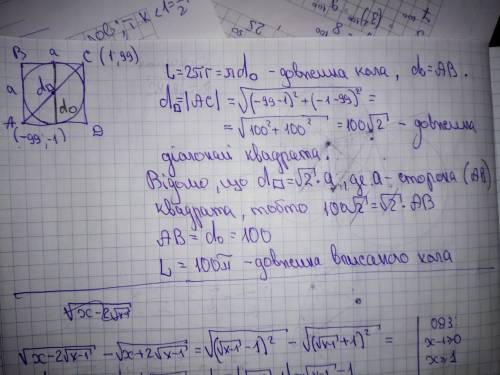 B a C (1,99)
a d₀
d₀
A D
(-99,-1)
L=2πr=πd₀ - довжина кола, d₀=AB.
d□=|AC|=√((-99-1)²+(-1-99)²)=
=√(100²+100²)=100√2 - довжина
діагоналі квадрата.
Відомо, що d□=√2·a, де a - сторона (AB)
квадрата, тобто 100√2=√2·AB
AB=d₀=100
L=100π - довжина вписаного кола
√(x-2√(x-1))
√(x-2√(x-1)) - √(x+2√(x-1)) = √((√(x-1)-1)²) - √((√(x-1)+1)²) =
ОДЗ:
x-1≥0
x≥1